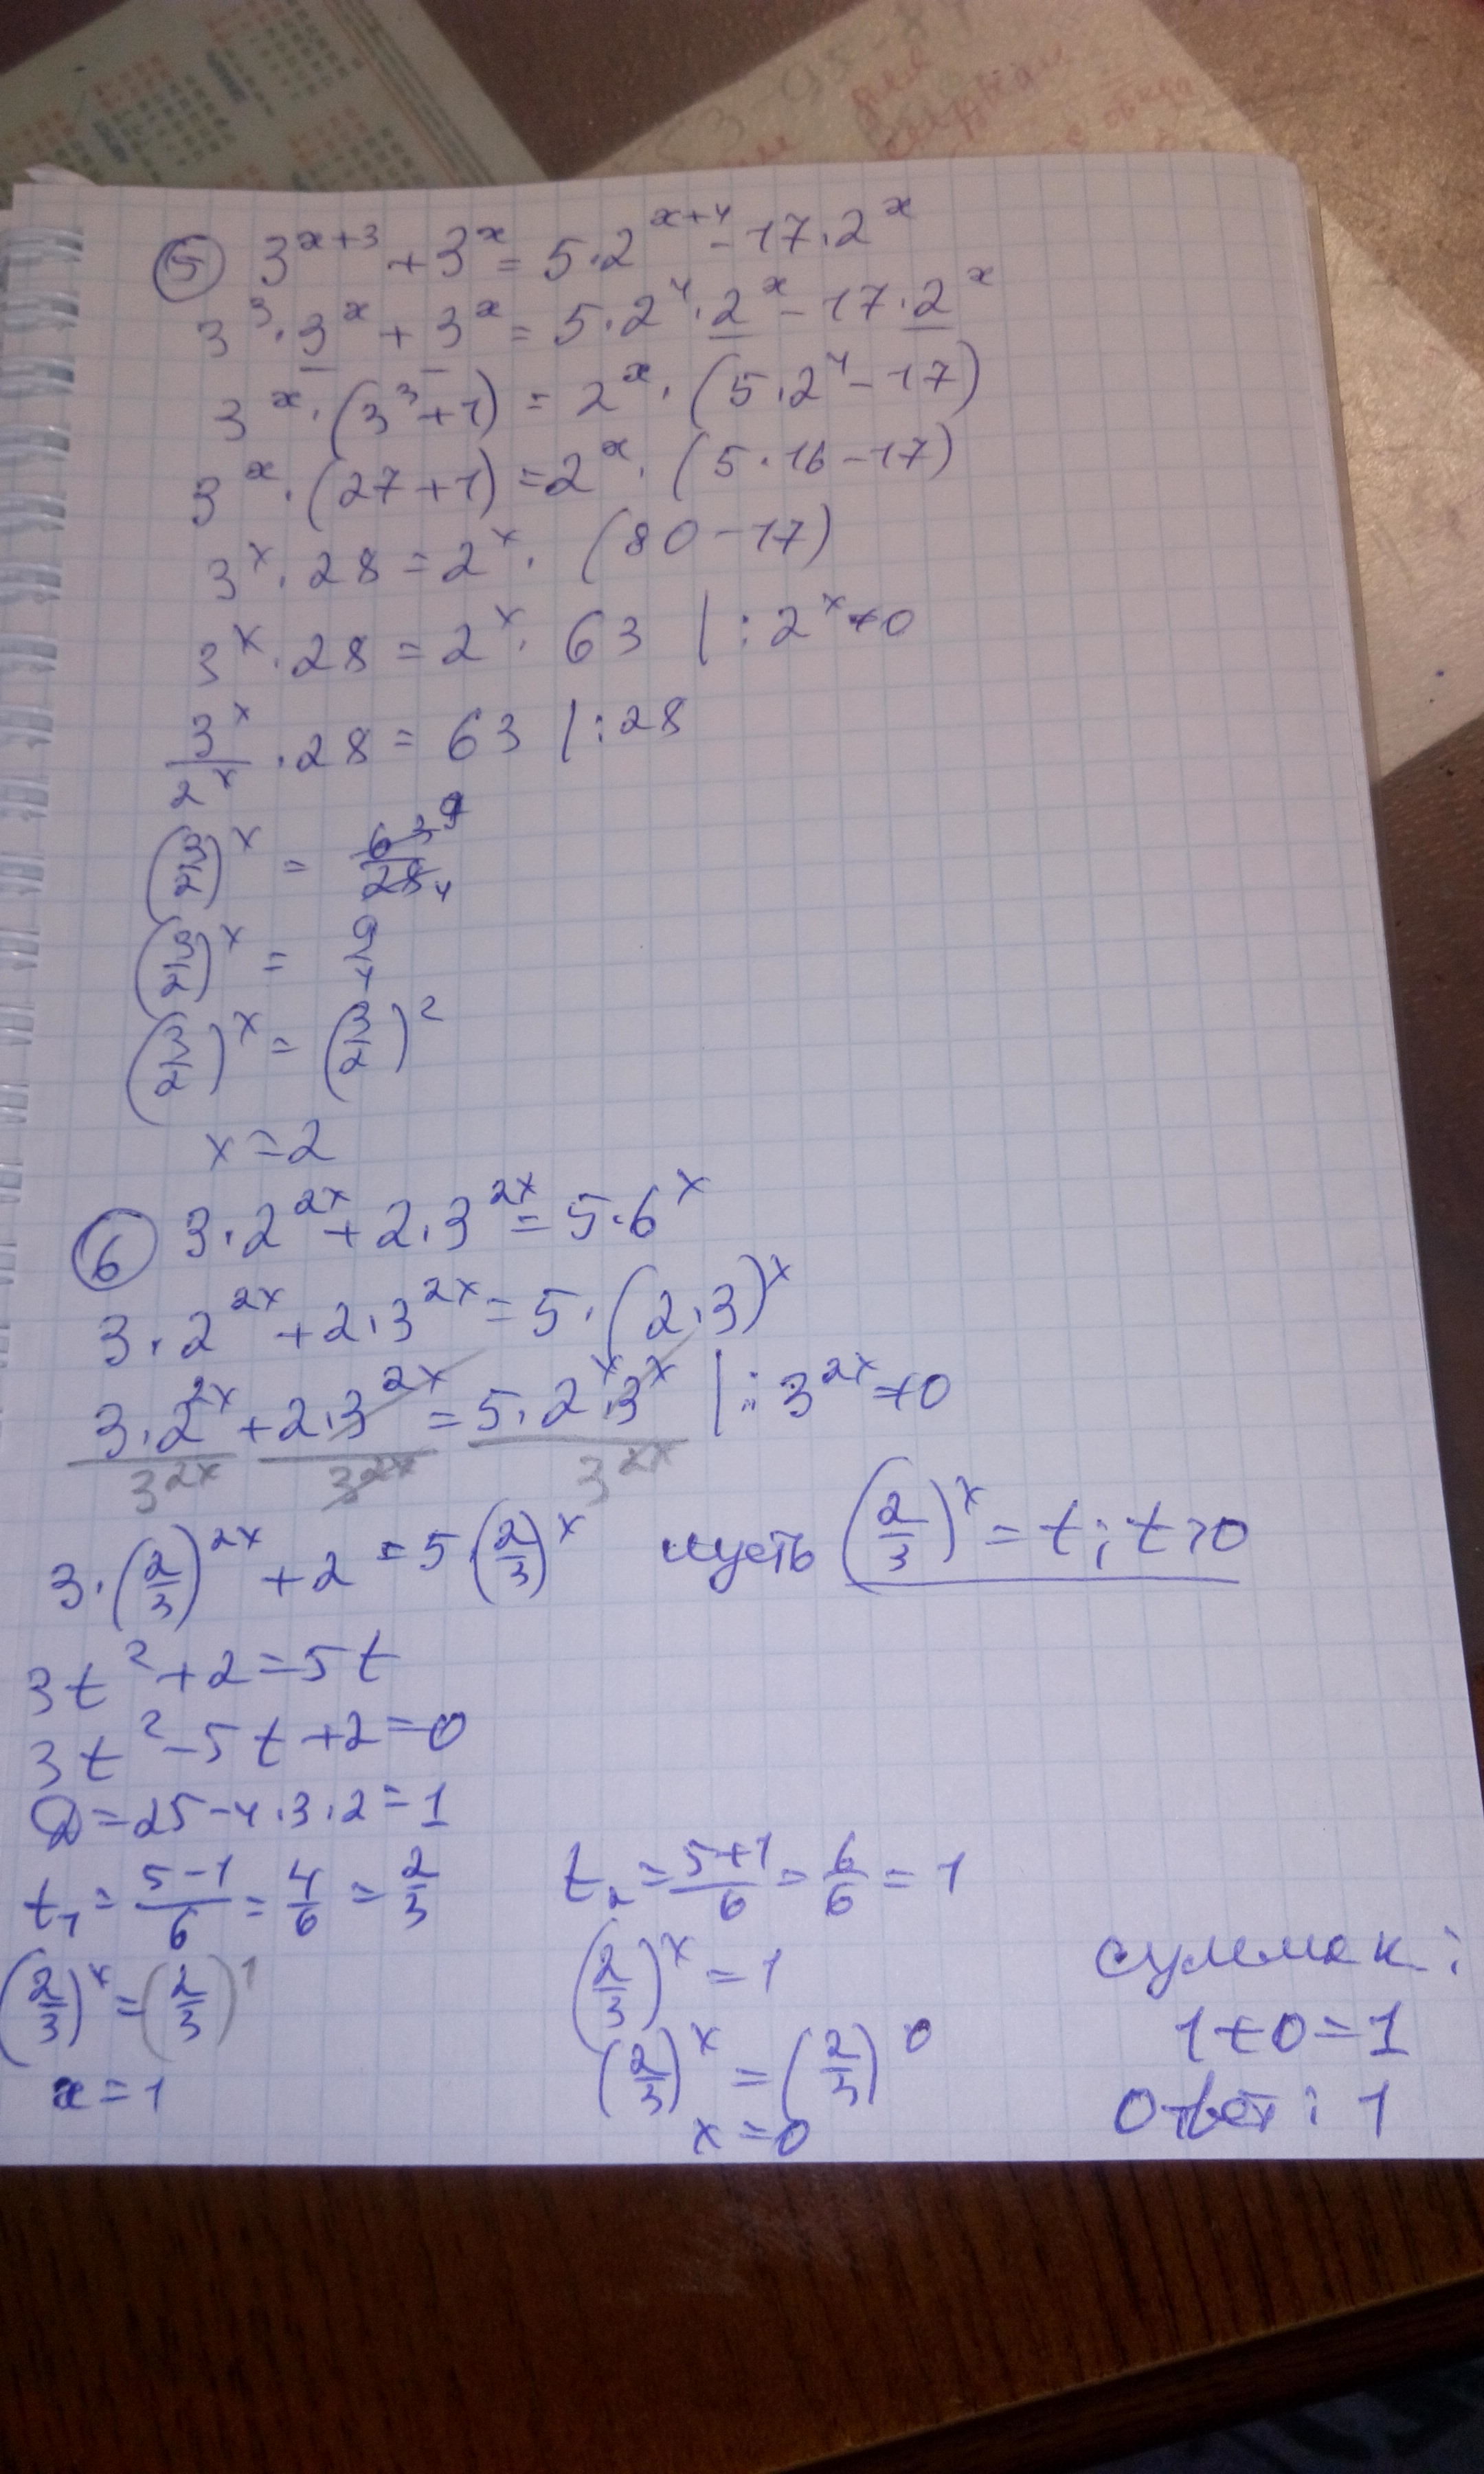 ⑤ 3^{x+3} + 3^x = 5·2^{x+4} - 17·2^x
3^3·3^x + 3^x = 5·2^4·2^x - 17·2^x
3^x·(3^3+1) = 2^x·(5·2^4-17)
3^x·(27+1) = 2^x·(5·16-17)
3^x·28 = 2^x·(80-17)
3^x·28 = 2^x·63 |:2^x≠0
3^x/2^x·28 = 63 |:28
(3/2)^x = 63 9/28 4
(3/2)^x = 9/4
(3/2)^x = (3/2)^2
x = 2
⑥ 3·2^{2x} + 2·3^{2x} = 5·6^x
3·2^{2x} + 2·3^{2x} = 5·(2·3)^x
3·2^{2x}/3^{2x} + 2·3^{2x}/3^{2x} = 5·2^x·3^x/3^{2x} |:3^{2x}≠0
3·(2/3)^{2x} + 2 = 5·(2/3)^x пусть (2/3)^x = t; t>0
3t^2+2=5t
3t^2-5t+2=0
D=25-4·3·2=1
t_1 = 5-1/6 = 4/6 = 2/3 t_2 = 5+1/6 = 6/6 = 1
(2/3)^x = (2/3)^1 (2/3)^x = 1 сумма к:
(2/3)^x = (2/3)^0 1+0=1
x=1 x=0 Ответ: 1